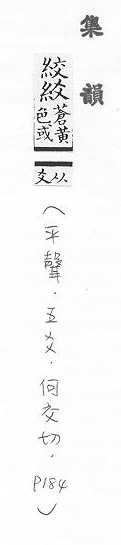 集韻
絞絞蒼黃色或从爻
（平聲．五爻．何交切．P184）